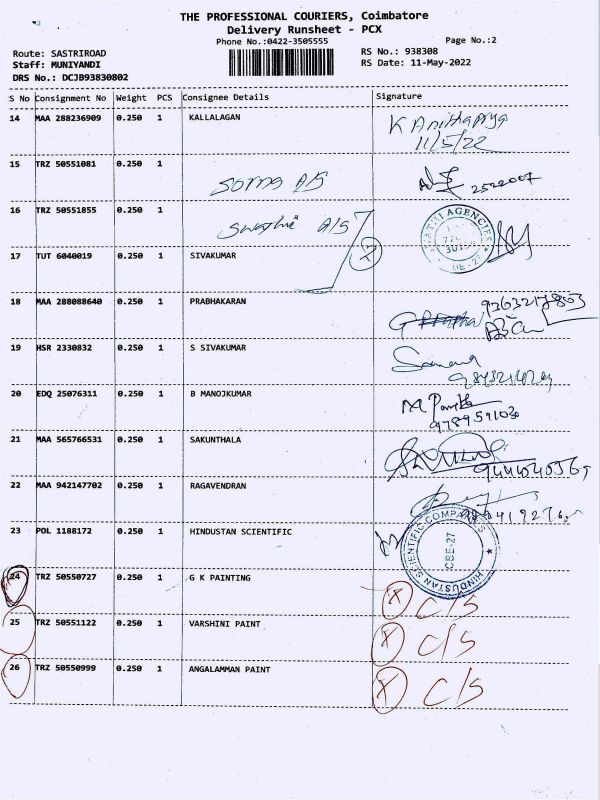 THE PROFESSIONAL COURIERS, Coimbatore
Delivery Runsheet - PCX
Phone No.:0422-3505555
Page No.:2
Route: SASTRIROAD
RS No.: 938308
Staff: MUNIYANDI
RS Date: 11-May-2022
DRS No.: DCJB93830802
S No Consignment No Weight PCS Consignee Details Signature
14 MAA 288236909 0.250 1 KALLALAGAN
11/5/22
15 TRZ 50551081 0.250 1
16 TRZ 50551855 0.250 1
AGENCIES
17 TUT 6040019 0.250 1 SIVAKUMAR
18 MAA 288088640 0.250 1 PRABHAKARAN
19 HSR 2330832 0.250 1 S SIVAKUMAR
20 EDQ 25076311 0.250 1 B MANOJKUMAR
21 MAA 565766531 0.250 1 SAKUNTHALA
22 MAA 942147702 0.250 1 RAGAVENDRAN
23 POL 1188172 0.250 1 HINDUSTAN SCIENTIFIC
HINDUSTAN SCIENTIFIC
CBE-27
24 TRZ 50550727 0.250 1 G K PAINTING X C/S
25 TRZ 50551122 0.250 1 VARSHINI PAINT X C/S
26 TRZ 50550999 0.250 1 ANGALAMMAN PAINT X C/S